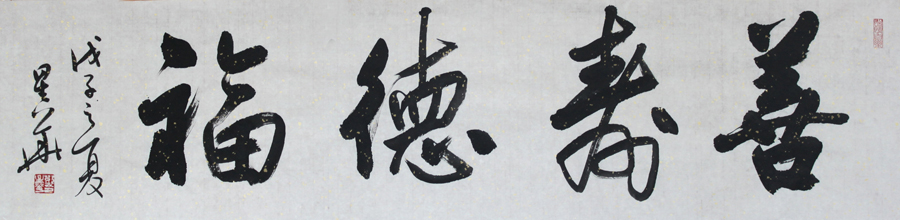 善壽德福
戊子之夏
星華